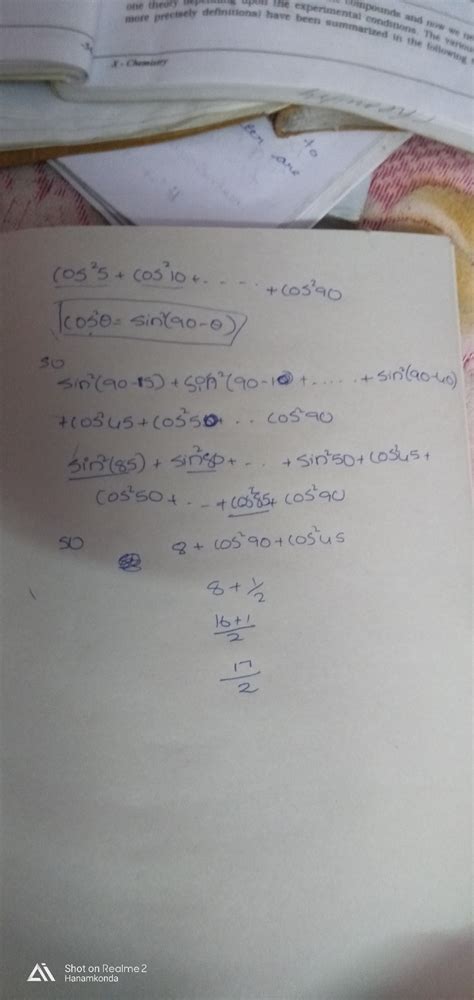 compounds and now we
one theory depending upon the experimental conditions. The
more precisely definitions) have been summarized in the following
X - Chemistry
to
are
cos²5 + cos²10 + ..... + cos²90
cos²θ = sin²(90-θ)
so
sin²(90-5) + sin²(90-10) + ..... + sin²(90-40)
+ cos²45 + cos²50 + .. cos²90
sin²(85) + sin²80 + .. + sin²50 + cos²45 +
cos²50 + .. + cos²85 + cos²90
so 8 + cos²90 + cos²45
8 + 1/2
16+1/2
17/2
Shot on Realme 2
Hanamkonda